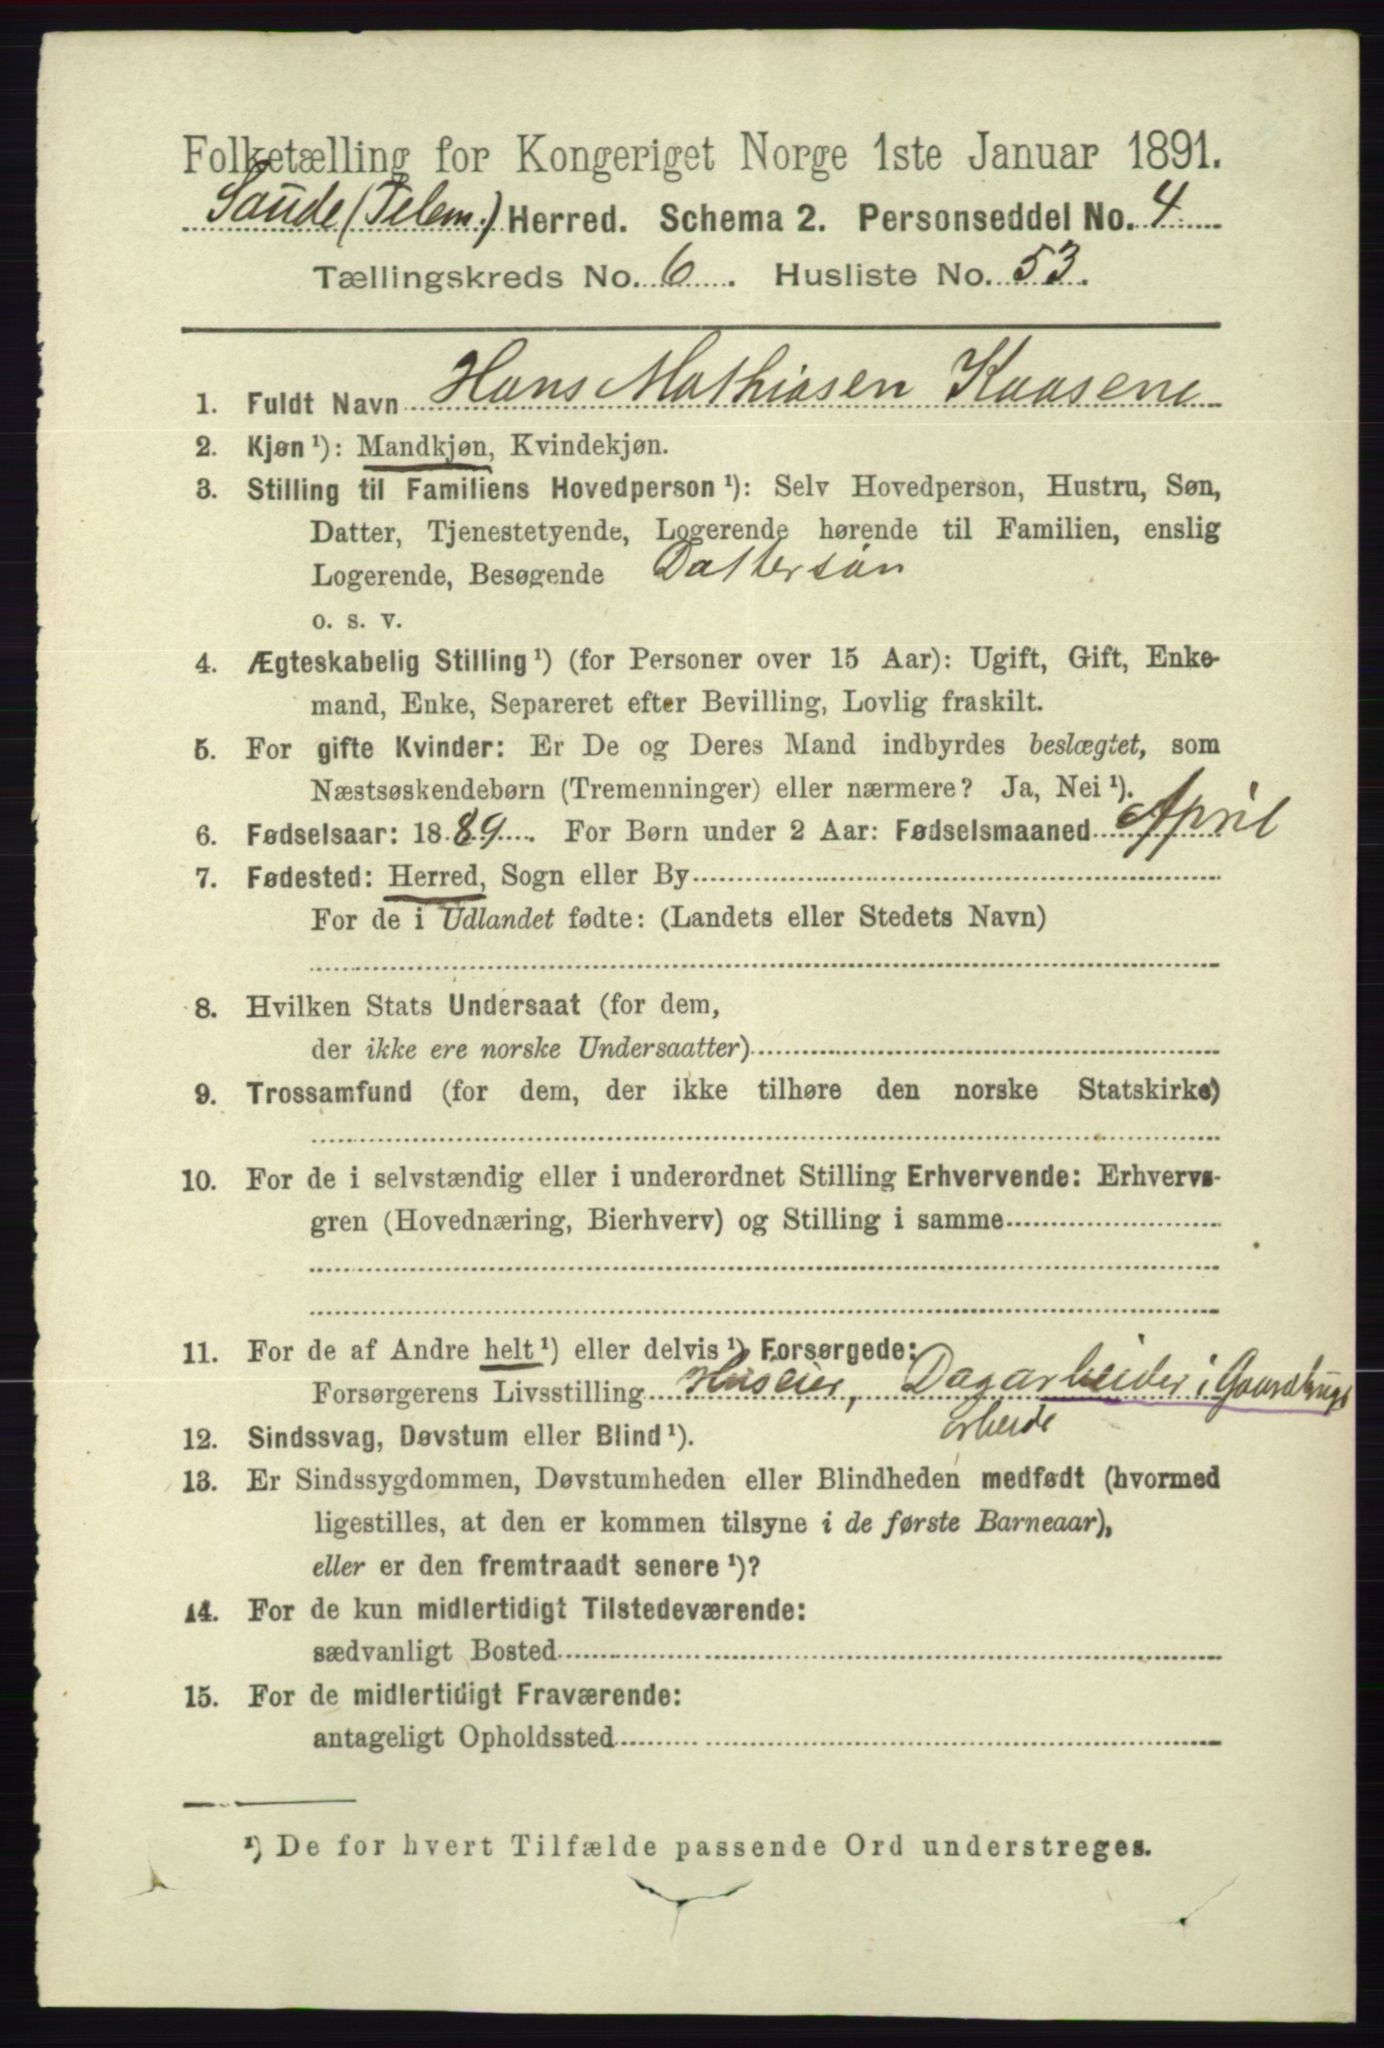 Folketælling for Kongeriget Norge 1ste Januar 1891.
Saude (Telem.) Herred. Schema 2. Personseddel No. 4
Tællingskreds No. 6. Husliste No. 53.
1. Fuldt Navn Hans Mathiasen Kaasene
2. Kjøn ¹): Mandkjøn, Kvindekjøn.
3. Stilling til Familiens Hovedperson ¹): Selv Hovedperson, Hustru, Søn,
Datter, Tjenestetyende, Logerende hørende til Familien, enslig
Logerende, Besøgende Dattersøn
o. s. v.
4. Ægteskabelig Stilling ¹) (for Personer over 15 Aar): Ugift, Gift, Enke-
mand, Enke, Separeret efter Bevilling, Lovlig fraskilt.
5. For gifte Kvinder: Er De og Deres Mand indbyrdes beslægtet, som
Næstsøskendebørn (Tremenninger) eller nærmere? Ja, Nei ¹).
6. Fødselsaar: 1889. For Børn under 2 Aar: Fødselsmaaned April
7. Fødested: Herred, Sogn eller By
For de i Udlandet fødte: (Landets eller Stedets Navn)
8. Hvilken Stats Undersaat (for dem,
der ikke ere norske Undersaatter)
9. Trossamfund (for dem, der ikke tilhøre den norske Statskirke)
10. For de i selvstændig eller i underordnet Stilling Erhvervende: Erhvervs-
gren (Hovednæring, Bierhverv) og Stilling i samme
11. For de af Andre helt ¹) eller delvis ¹) Forsørgede:
Forsørgerens Livsstilling Huseier, Dagarbeider i Gaardbrugs
arbeide
12. Sindssvag, Døvstum eller Blind ¹).
13. Er Sindssygdommen, Døvstumheden eller Blindheden medfødt (hvormed
ligestilles, at den er kommen tilsyne i de første Barneaar),
eller er den fremtraadt senere ¹)?
14. For de kun midlertidigt Tilstedeværende:
sædvanligt Bosted
15. For de midlertidigt Fraværende:
antageligt Opholdssted
¹) De for hvert Tilfælde passende Ord understreges.